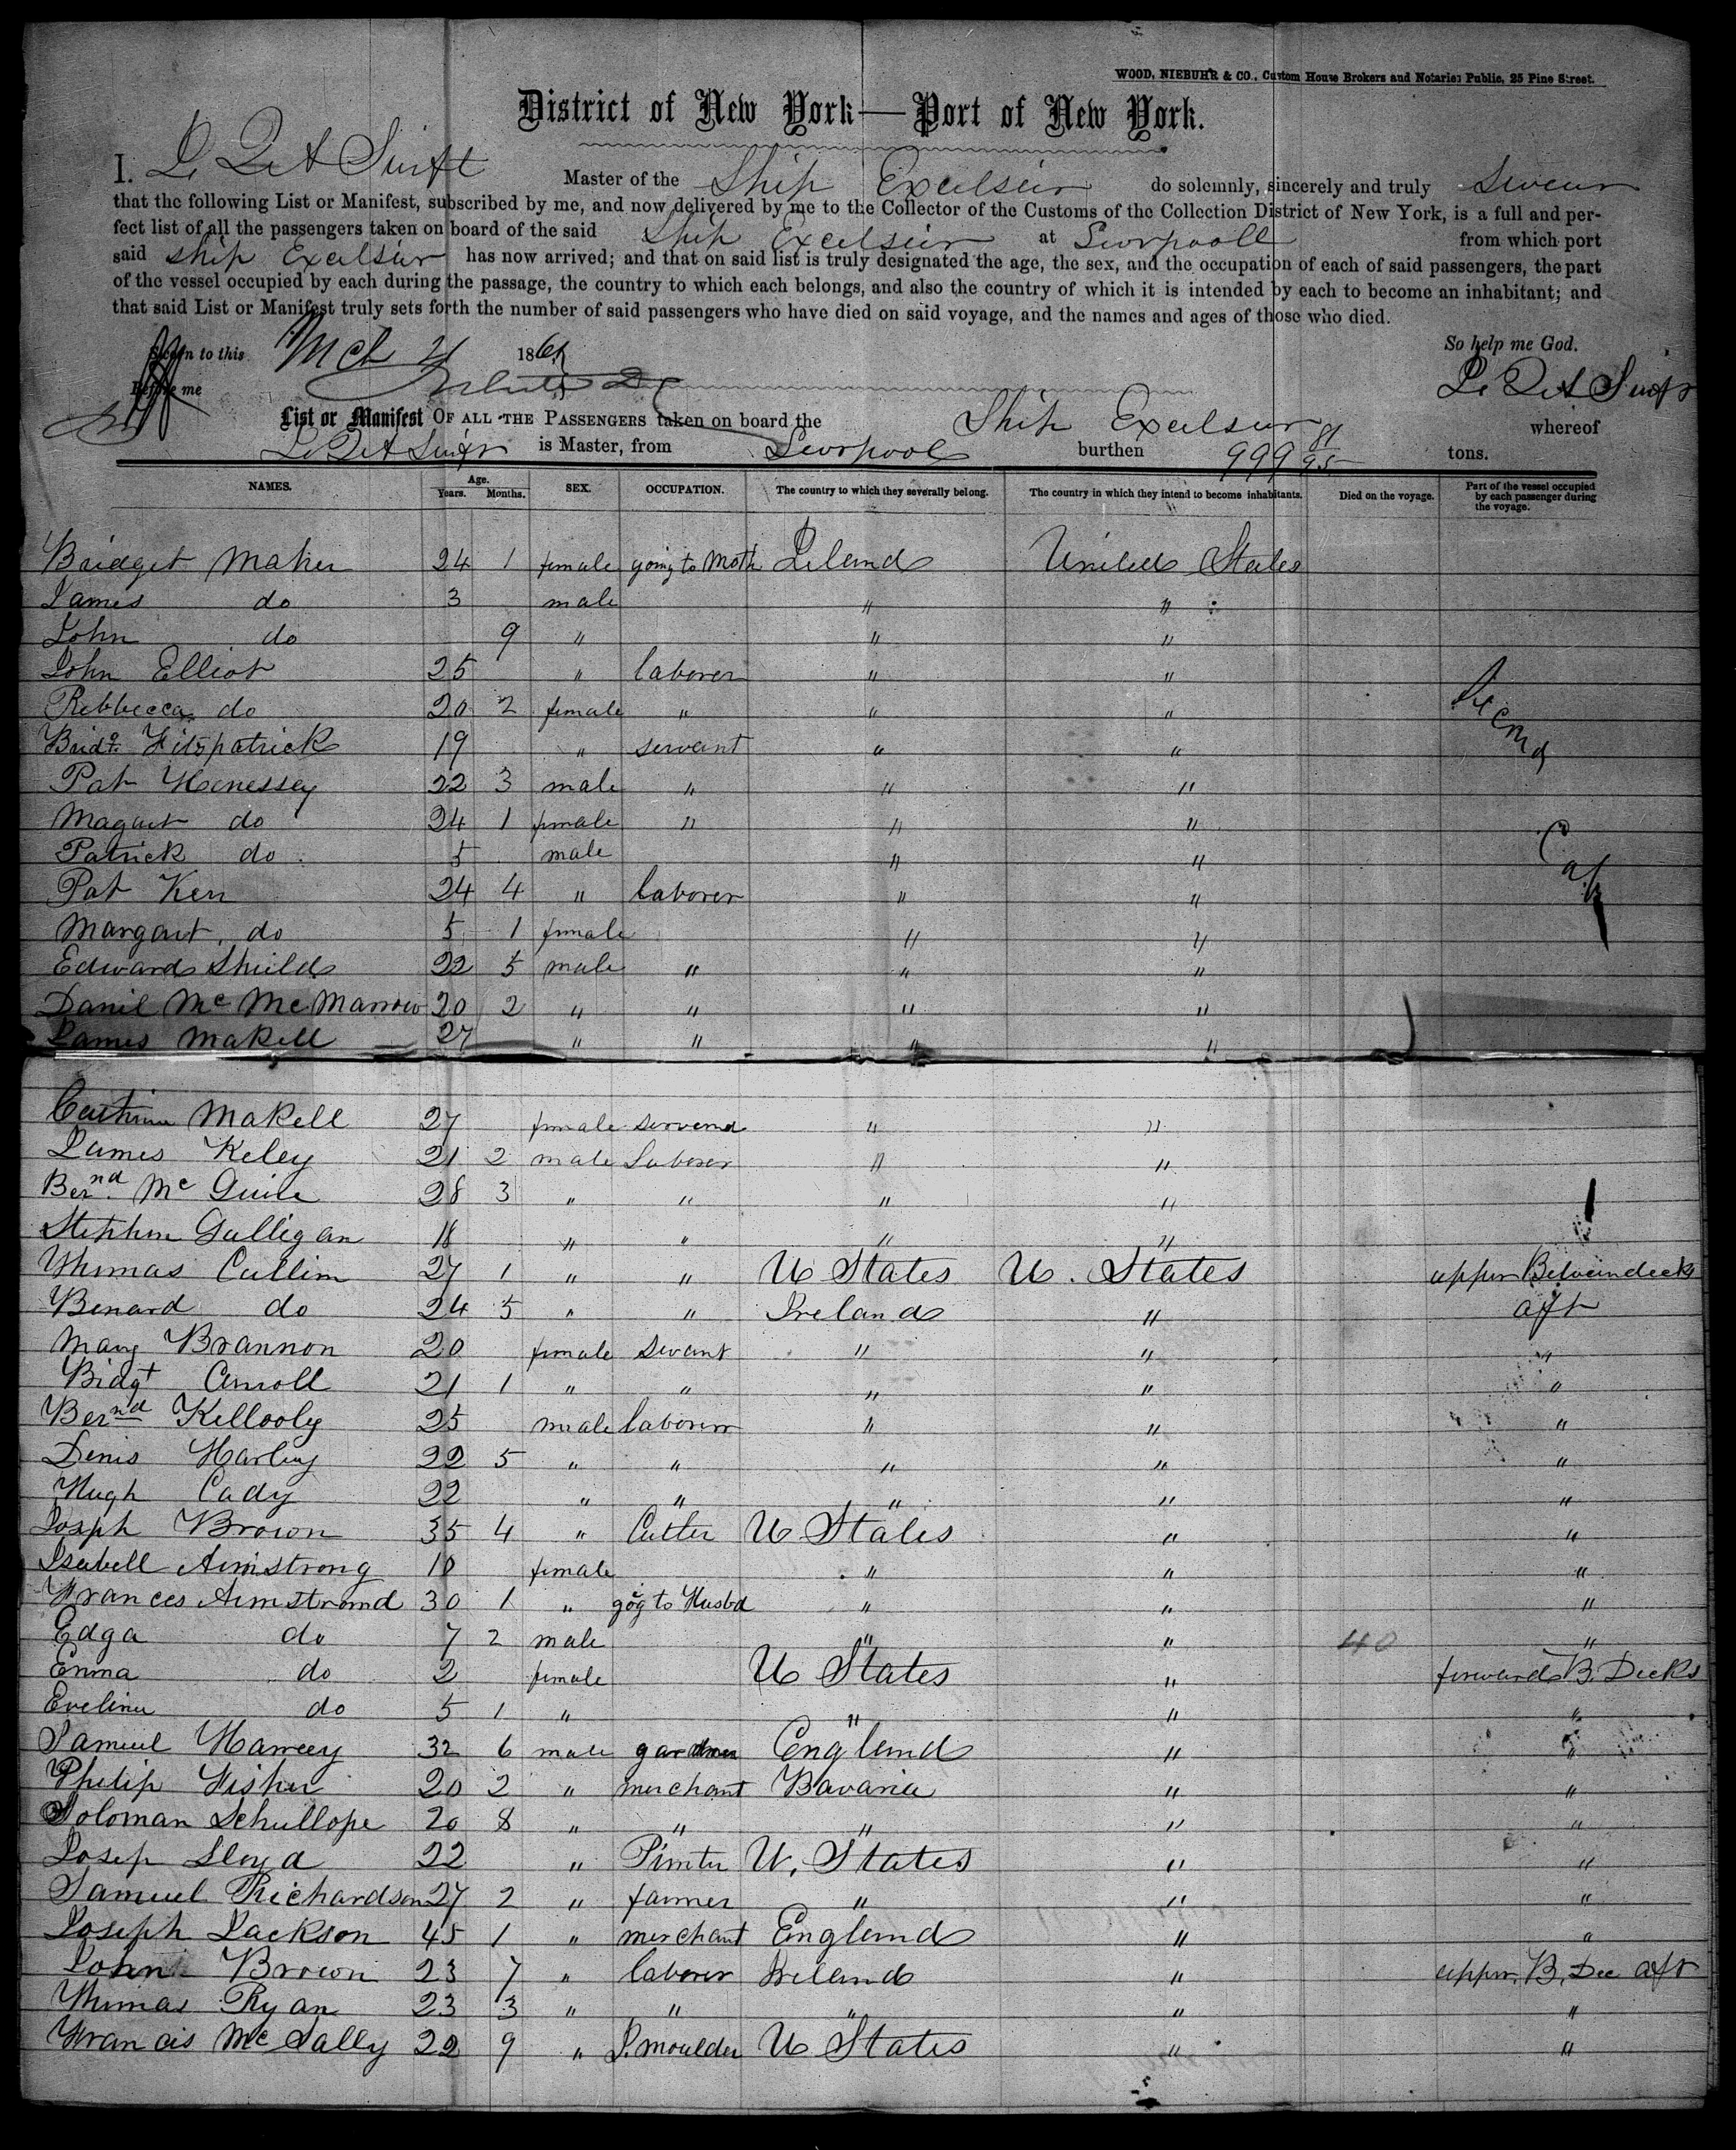 WOOD, NIEBUHR & CO., Custom House Brokers and Notaries Public, 25 Pine Street.
District of New York—Port of New York.
I. Swift Master of the Ship Excelsior do solemnly, sincerely and truly Swear
that the following List or Manifest, subscribed by me, and now delivered by me to the Collector of the Customs of the Collection District of New York, is a full and per-
fect list of all the passengers taken on board of the said Ship Excelsior at Liverpooll from which port
said ship Excelsior has now arrived; and that on said list is truly designated the age, the sex, and the occupation of each of said passengers, the part
of the vessel occupied by each during the passage, the country to which each belongs, and also the country of which it is intended by each to become an inhabitant; and
that said List or Manifest truly sets forth the number of said passengers who have died on said voyage, and the names and ages of those who died.
Sworn to this Mch 4 186 So help me God.
Before me Swift
List or Manifest OF ALL THE PASSENGERS taken on board the Ship Excelsior whereof
Swift is Master, from Liverpool burthen 999 81/95 tons.
NAMES. Age. Years. Months. SEX. OCCUPATION. The country to which they severally belong. The country in which they intend to become inhabitants. Died on the voyage. Part of the vessel occupied by each passenger during the voyage.
Bridget Maher 24 1 female going to Moth Ireland United States
James do 3 male " "
John do 9 " " "
John Elliot 25 " laborer " "
Rebbecca do 20 2 female " " "
Bridt Fitzpatrick 19 " servant " "
Pat Henessey 22 3 male " " "
Magaret do 24 1 female " " "
Patrick do 5 male " "
Pat Kerr 24 4 " laborer " "
Margaret do 5 1 female " "
Edward Shields 22 5 male " " "
Daniel Mc McManrow 20 2 " " " "
James Makell 27 " " " "
Makell 27 female " "
James Keley 21 2 male Laborer " "
Bernd Mc Guire 28 3 " " " "
Stephen Galligan 18 " " " "
Thomas Cullim 27 1 " " U States U. States upper Betweindeck
Benard do 24 5 " " Ireland " aft
Mary Brannon 20 female servant " " "
Bidgt Carroll 21 1 " " " " "
Bernd Killooly 25 male laborer " " "
Denis Harley 22 5 " " " " "
Hugh Cady 22 " " " " "
Joseph Brown 35 4 " Cutter U States " "
Isabell Armstrong 10 female " " "
Frances Armstrond 30 1 " gog to Husbd " " "
Edga do 7 2 male " " 40 "
Emma do 2 female U States " forward B. Decks
Evelina do 5 1 " " " "
Samuel Harvey 32 6 male gardner England " "
Philip Fisher 20 2 " merchant Bavaria " "
Soloman Schullope 20 8 " " " " "
Josep Lloyd 22 " Printer U. States " "
Samuel Richardson 27 2 " farmer " " "
Joseph Jackson 45 1 " merchant England " "
John Brown 23 7 " laborer Ireland " upper. B. Dec aft
Thomas Ryan 23 3 " " " " "
Francis McLally 22 9 " I. moulder U States " "